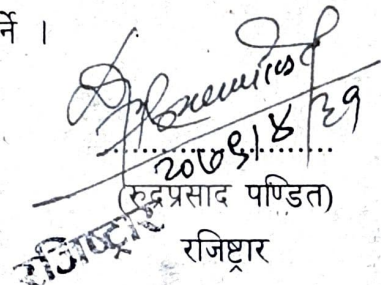 र्ने ।
२०७९।४।३१
(रुद्रप्रसाद पण्डित)
रजिष्ट्रार
रजिष्ट्रार